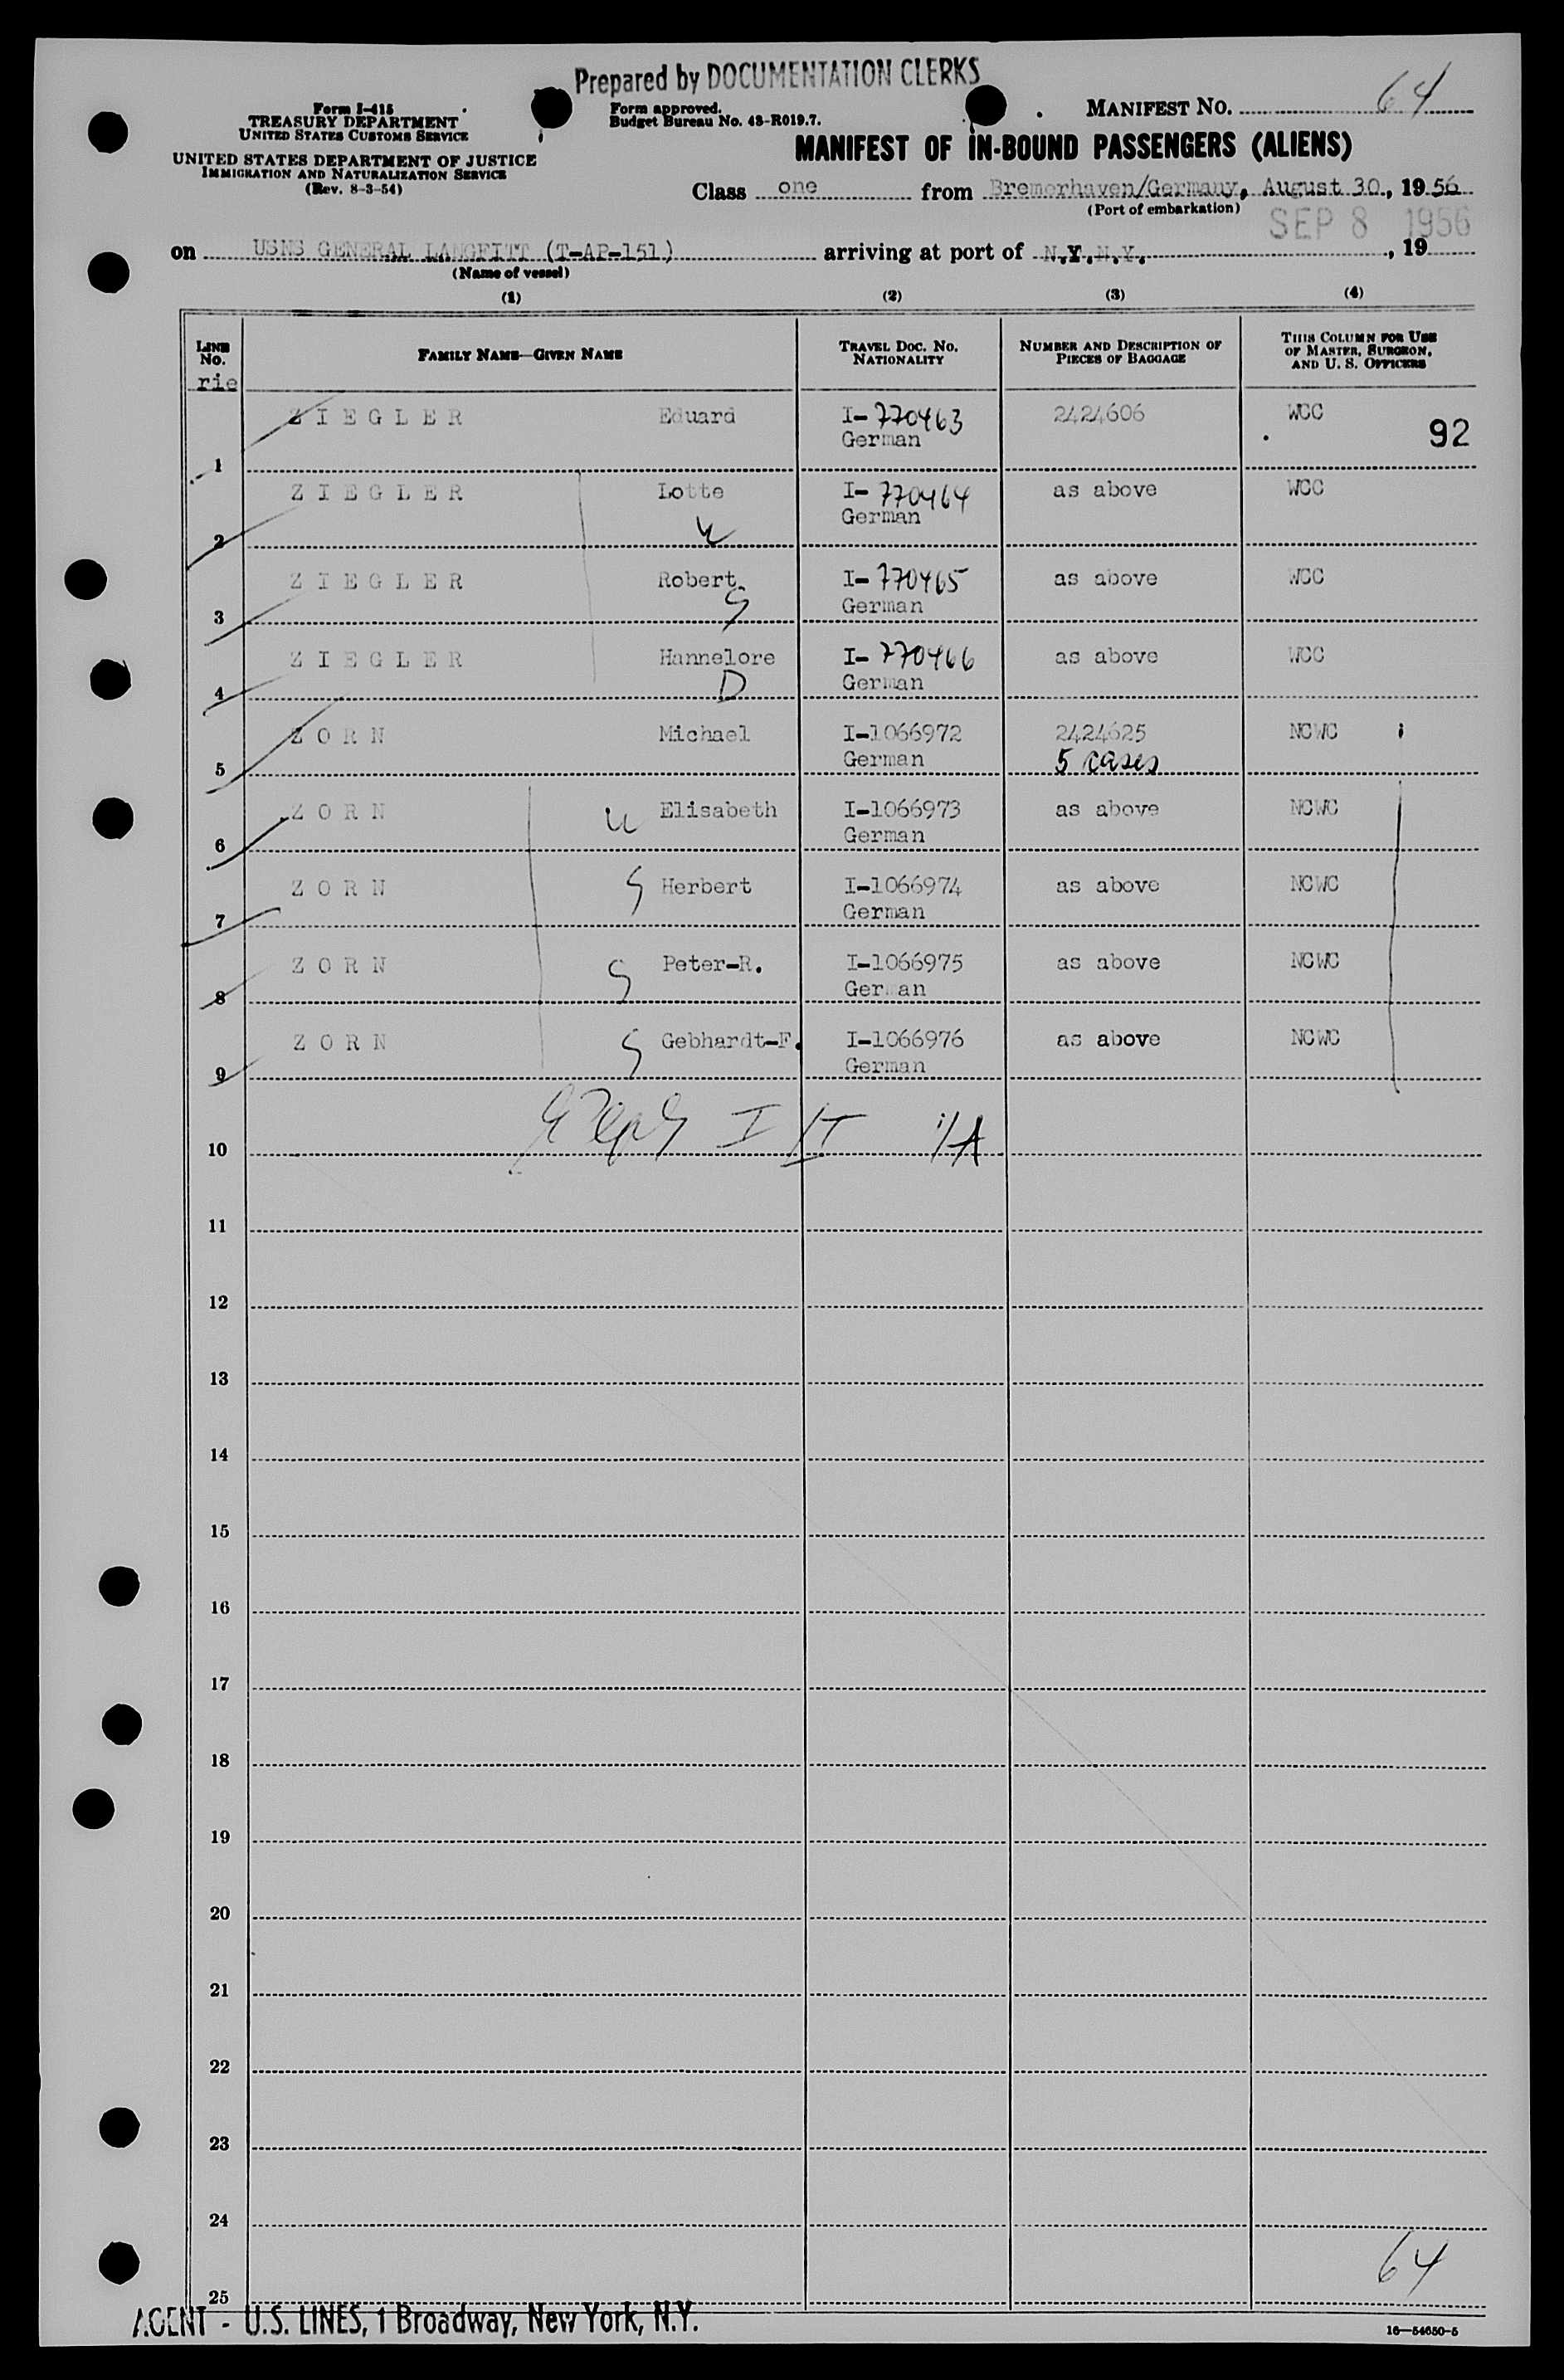 Prepared by DOCUMENTATION CLERKS
Form I-415
TREASURY DEPARTMENT
UNITED STATES CUSTOMS SERVICE
UNITED STATES DEPARTMENT OF JUSTICE
IMMIGRATION AND NATURALIZATION SERVICE
(Rev. 8-3-54)
Form approved.
Budget Bureau No. 43-R019.7.
MANIFEST NO. 64
MANIFEST OF IN-BOUND PASSENGERS (ALIENS)
Class one from Bremerhaven/Germany, August 30, 1956
(Port of embarkation)
SEP 8 1956
on USNS GENERAL LANGFITT (T-AP-151) arriving at port of N.Y. N.Y. , 19
(Name of vessel)
(1) (2) (3) (4)
LINE No. FAMILY NAME—GIVEN NAME TRAVEL DOC. NO. NATIONALITY NUMBER AND DESCRIPTION OF PIECES OF BAGGAGE THIS COLUMN FOR USE OF MASTER, SURGEON, AND U. S. OFFICERS
rie
1 ZIEGLER Eduard I-770463 German 2424606 WCC 92
2 ZIEGLER Lotte I-770464 German as above WCC
3 ZIEGLER Robert S I-770465 German as above WCC
4 ZIEGLER Hannelore D I-770466 German as above WCC
5 ZORN Michael I-1066972 German 2424625 5 cases NCWC
6 ZORN Elisabeth I-1066973 German as above NCWC
7 ZORN S Herbert I-1066974 German as above NCWC
8 ZORN S Peter-R. I-1066975 German as above NCWC
9 ZORN S Gebhardt-F. I-1066976 German as above NCWC
10
11
12
13
14
15
16
17
18
19
20
21
22
23
24
25
64
AGENT - U.S. LINES, 1 Broadway, New York, N.Y.
16—54650-5